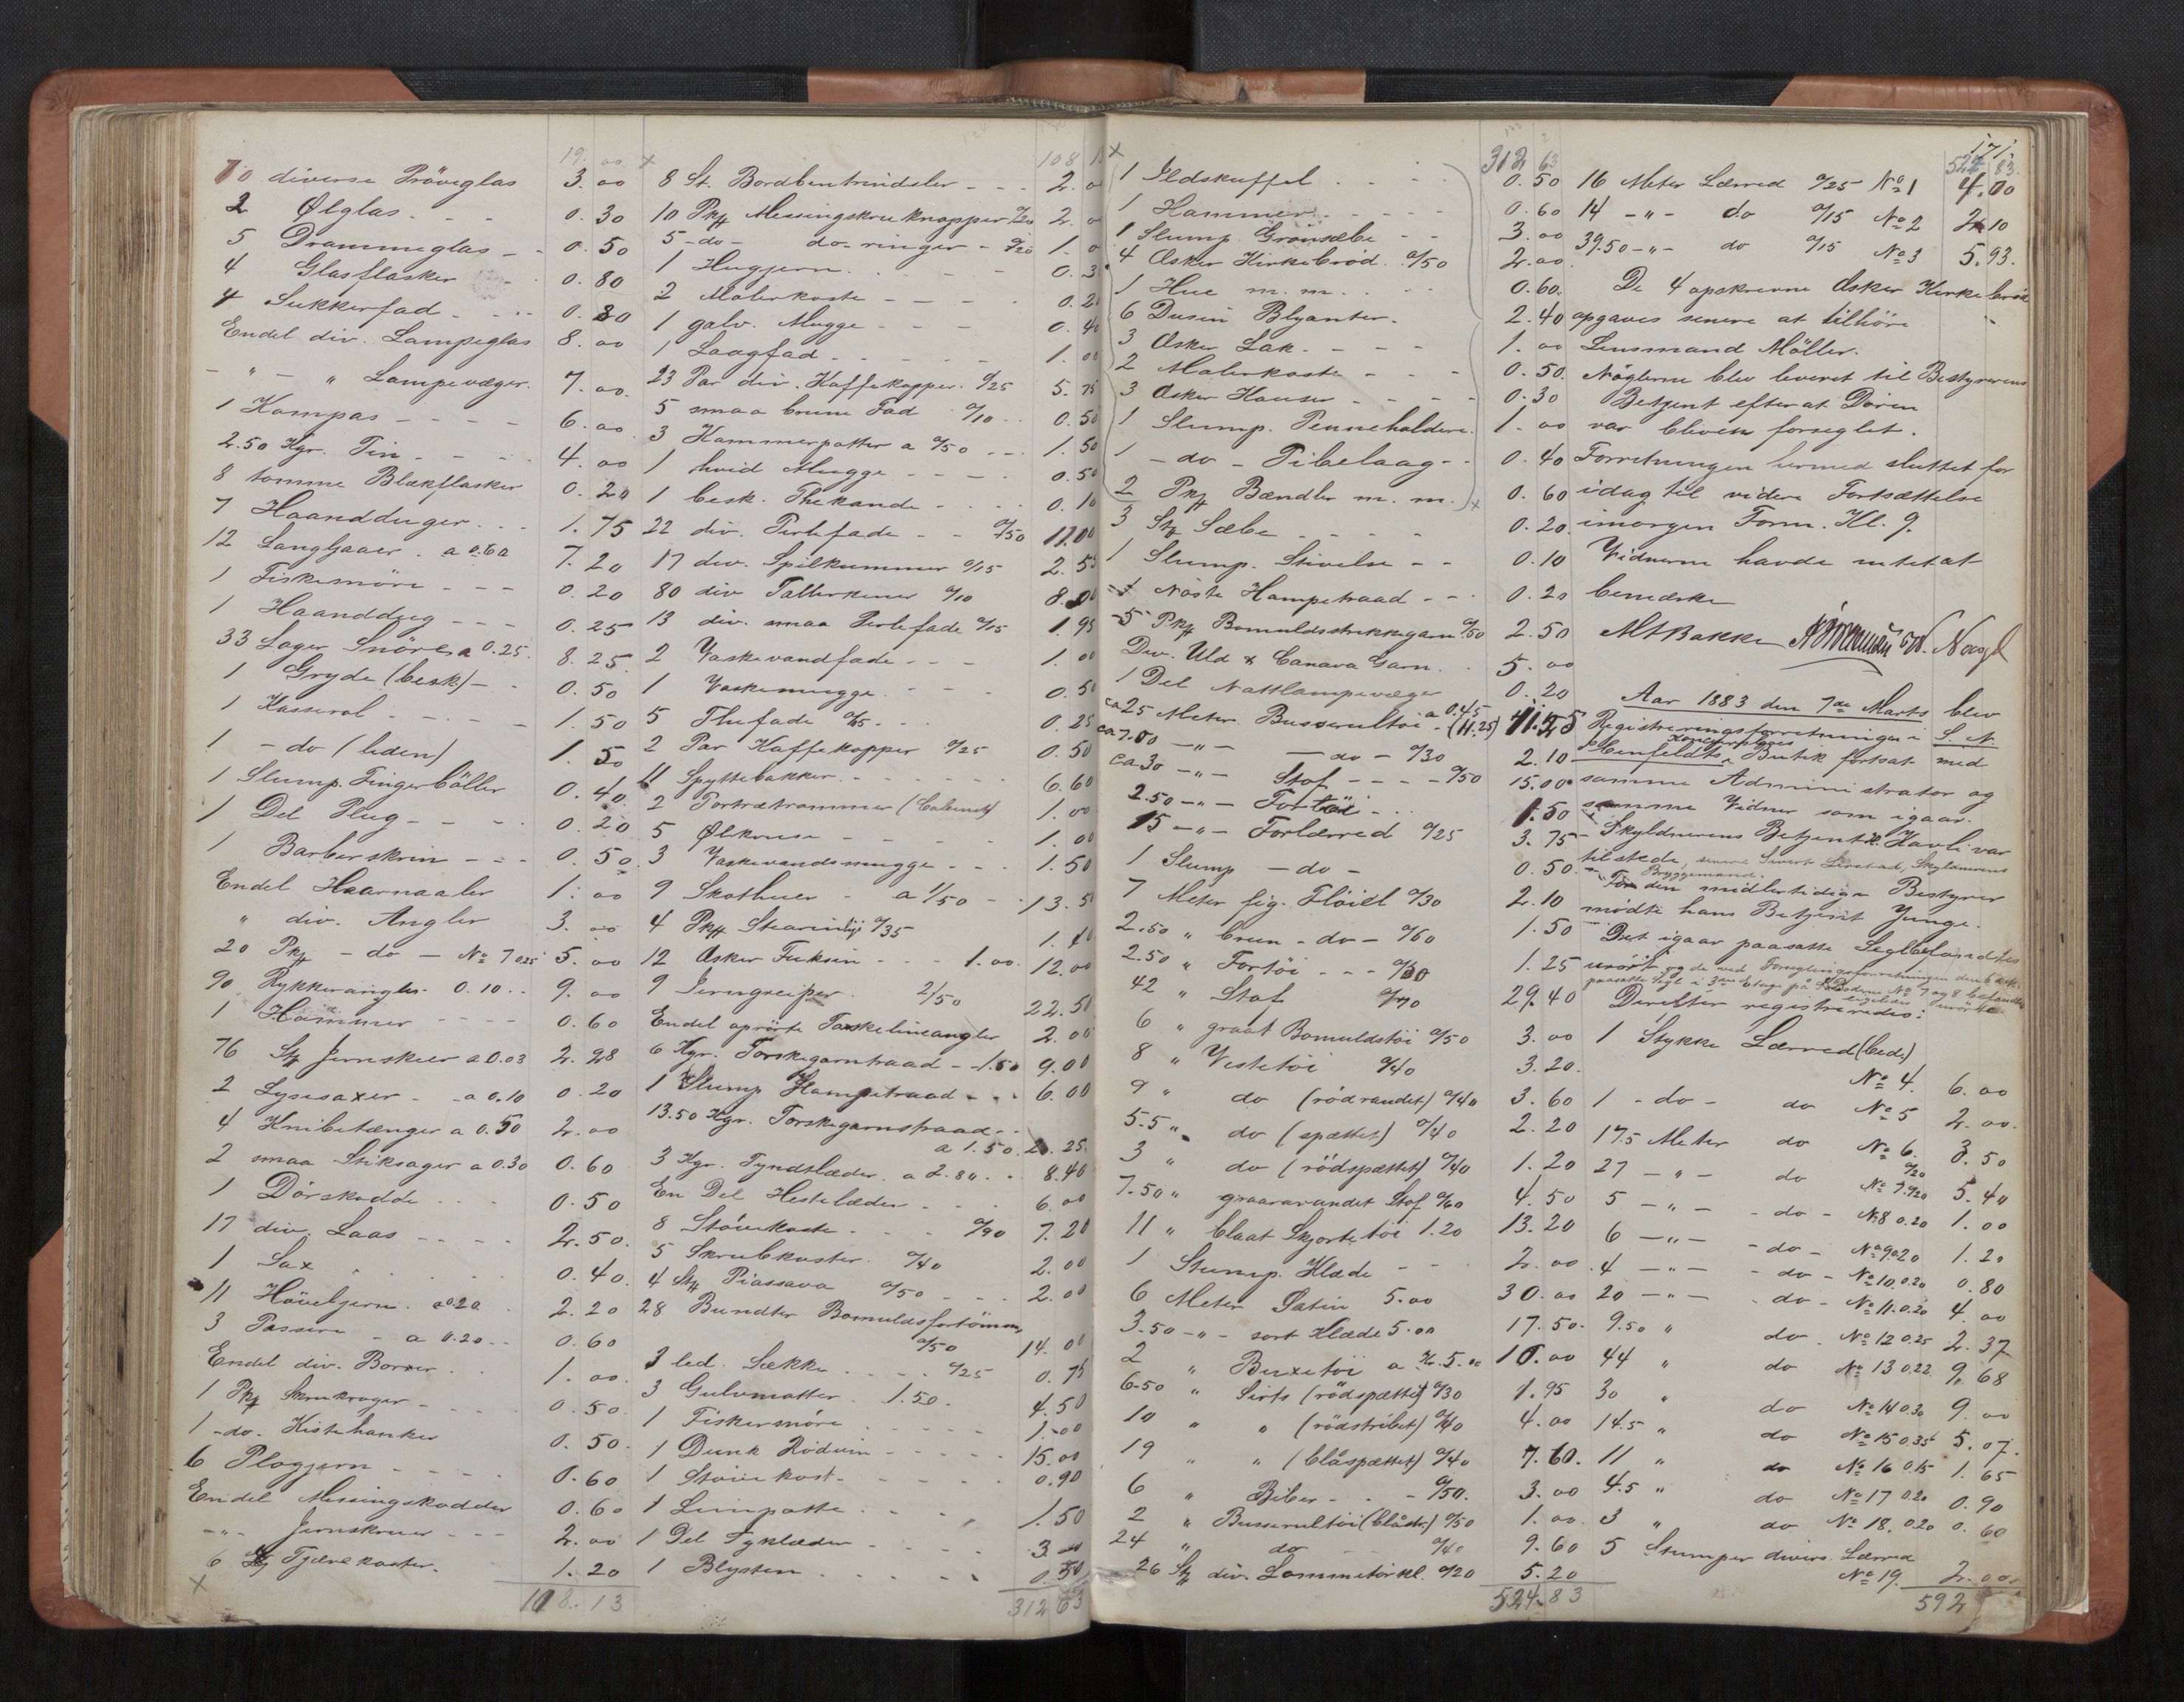 19. 00
10 diverse Pröveglas 3.00
2 Ølglas 0.30
5 Drammeglas 0.50
4 Glasflasker 0.80
4 Sukkerfad 0.80
Endel div. Lampeglas 8.00
- " - " Lampevæger. 7.00
1 Kompas 6.00
2.50 Kgr. Tin 4.00
8 tomme Blækflasker 0.20
7 Haandduger 1.75
12 Langljaaer a 0.60 7.20
1 Fiskesnöre 0.20
1 Haanddug 0.25
33 Lager Snöre a 0.25. 8.25
1 Gryde (besk.) 0.50
1 Kasserol 1.50
1 - do (liden) 1.50
1 Slump Fingerböller 0.40
1 Del Plug 0.20
1 Barberskrin 0.50
Endel Haarnaaler 1.00
" div. Angler 3.00
20 Pk - do - No 7 0.25 5.00
90 Rykkerangler 0.10 9.00
1 Hammer 0.60
76 St Jernskeer a 0.03 2.28
2 Lysesaxer a 0.10 0.20
4 Knibetænger a 0.50 2.00
2 smaa Stiksager a 0.30 0.60
1 Dörskodde 0.50
17 div. Laas 2.50
1 Sax 0.40
11 Höveljern a 0.20 2.20
3 Passere a 0.20 0.60
Endel div. Borrer 1.00
1 Pk Skrukroger 0.50
1 - do. Kistehanker 0.50
6 Plogjern 0.60
Endel Messingskodder 0.60
- " - Jernskruer 2.00
6 St Tjærekoster. 1.20
108.13
108 1
8 St. Bordbentrindsler 2.0
10 Pk Messingskrueknapper 0/20 2.0
5 - do - do - ringer 0/20 1.0
1 Hugjern 0.3
2 Malerkoste 0.20
1 galv. Mugge 0.40
1 Laagfad 1.00
23 Par div. Kaffekopper 0/25 5.75
5 smaa brune Fad 0/10 0.50
3 Kammerpotter a 0/50 1.50
1 hvid Mugge 0.50
1 besk. Thekande 0.10
22 div. Terlefade 0/50 11.00
17 div. Spilkummer 0/15 2.55
80 div Tallerkener 0/10 8.00
13 div. smaa Terlefade 0/15 1.95
2 Vaskevandfade 1.00
1 Vaskemugge 0.50
5 Thefade 0/5 0.25
2 Par Kaffekopper 0/25 0.50
11 Spyttebakker 6.60
2 Portrætrammer (Cabinet) 1.00
5 Ølkruse 1.00
3 Vaskevandsmugge 1.50
9 Skothuer a 1/50 13.5
4 Pk Stearinlys 0/35 1.40
12 Æsker Fuksin 1.00. 12.00
9 Jerngreiper 2/50 22.50
Endel oprörte Torskelineangler 2.00
6 Kgr. Torskegarntraad 1.50 9.00
1 Slump Hampetraad 6.00
13.50 Kgr. Torskegarnstraad
a 1.50 20.25
3 Kgr. Tyndlæder a 2.80 8.40
En Del Hestelæder 6.00
8 Stövekoste 0/90 7.20
5 Skrubkoster 0/40 2.00
4 St Piassava 0/50 2.00
28 Bundter Bomuldsfortömm
0/50 14.00
3 led. Sække 0/25 0.75
3 Gulvmatter 1.50. 4.50
1 Fiskersnöre 1.00
1 Dunk Rödvin 15.00
1 Stövekost 0.90
1 Limpotte 1.50
1 Del Tyklæder 3.00
1 Blysten 0.50
312 63
312 63
1 Ildskuffel 0.50
1 Hammer 0.60
1 Slump Grönsæbe 3.00
4 Æsker Kirkebröd 0/50 2.00
1 Hue m. m. 0.60.
6 Dusin Blyanter. 2.40
3 Æsker Lak. 1.00
2 Malerkoste 0.50
3 Æsker Hauser 0.30
1 Slump. Penneholdere 1.00
1 - do - Pibelaag 0.40
2 Pk Bændler m. m. 0.60
3 St Sæbe 0.20
1 Slump. Stivelse 0.10
1 Nöste Hampetraad 0.20
5 Pk Bomuldsstrikkegarn 0/50 2.50
Div. Uld & Canava Garn 5.00
1 Del Natlampevæger 0.20
ca 25 Meter Busserultöi a 0.45 (11.25) 11.25
ca 7.00 - " - - do - 0/30 2.10
ca 30 - " - Stof 0/50 15.00
2.50 - " - Fortöi 1.50
15 - " - Forlærred 0/25 3.75
1 Slump - do - 0.50
7 Meter fig. Flöiel 0/30 2.10
2.50 " brun - do - 0/60 1.50
2.50 " Fortöi 0/50 1.25
42 " Stof 0/70 29.40
6 " graat Bomuldstöi 0/50 3.00
8 " Vestetöi 0/40 3.20.
9 " do (rödrandet) 0/40 3.60
5.5 " do (spættet) 0/40 2.20
3 " do (rödspættet) 0/40 1.20
7.50 " graarandet Stof 0/60 4.50
11 " blaat Skjortetöi 1.20 13.20
1 Stump. Klæde 2.00
6 Meter Satin 5.00 30.00
3.50 - " - sort Klæde 5.00 17.50
2 " Buxetöi a Kr. 5.00 10.00
6.50 " Sirts (rödspættet) 0/30 1.95
10 " " (rödstribet) 0/40 4.00
19 " " (blåspættet) 0/40 7.60.
6 " Biber 0/50. 3.00
2 " Busserultöi (blåstr.) 0/50 1.00
24 " do 0/40 9.60
26 St div. Lommetörkl. 0/20 5.20
524.83
171.
524 83.
16 Meter Lærred 0/25 No 1 4.00
14 - " - do 0/15 No 2 2.10
39.50 - " - do 0/15 No 3 5.93.
De 4 opskrevne Æsker Kirkebröd
opgaves senere at tilhöre
Lensmand Möller.
Nöglerne blev leveret til Bestyrerens
Betjent efterat Dören
var bleven forseglet.
Forretningen hermed sluttet for
idag til videre Fortsættelse
imorgen Form. Kl. 9.
Vidnerne havde intet at
bemærke
MtBakke
Aar 1883 den 7de Marts blev
Registreringsforretningen i S. N.
Ebenfeldts Butik fortsat med
samme Administrator og
samme Vidner som igaar.
Skyldnerens Betjent K. Havli var
tilstede, senere Sivert Skyldnerens
Bryggemand.
For den midlertidige Bestyrer
mödte hans Betjent Junge.
Det igaar paasatte Segl befandtes
urört og de ved Forseglingsforretningen den
paasatte Segl i 3die Etage på No 7 og 8 befandtes
ligeledes urörte
Derefter registreredes:
1 Stykke Lærred (bede)
No 4. 6.00
1 - do - do No 5 2.00.
17.5 Meter do No 6. 0/20 3.50
27 - " - do No 7. 0/20 5.40
5 - " - - do - No 8 0.20 1.00
6 - " - - do - No 9 0.20 1.20
4 - " - - do - No 10. 0.20 0.80
20 - " - - do - No 11. 0.20 4.00
9.50 " do No 12 0.25 2.37
44 " do No 13 0.22 9.68
30 " do No 14 0.30 9.00
14.5 " do No 15 0.35 5.07.
11 " do No 16 0.15 1.65
4.5 " do No 17 0.20 0.90
3 " do No 18. 0.20 0.60
5 Stumper divers. Lærred
No 19. 2.00
592